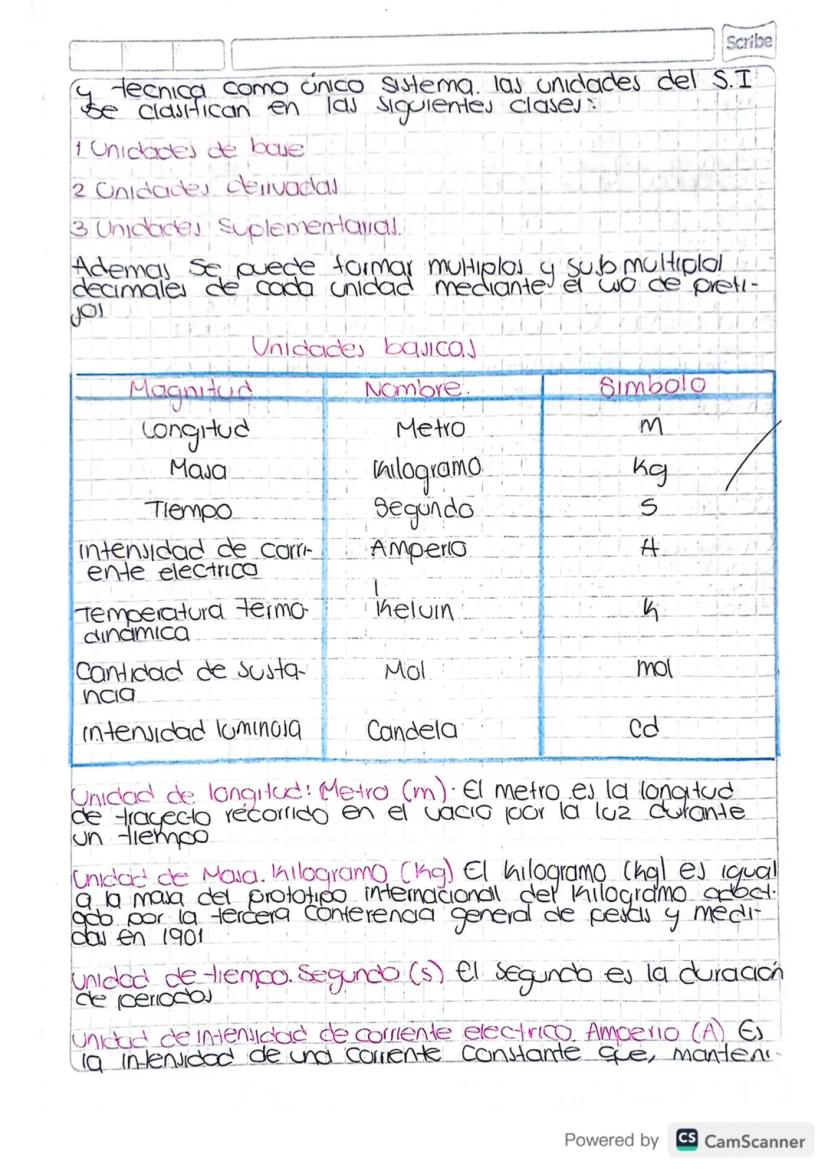 Scribe
y tecnica como único sistema. las unidades del S.I
se clasifican en las siguientes clases:
1 Unidades de base
2 Unidades derivadas
3 Unidades Suplementarias.
Ademas se puede formar multiplos y submultiplos
decimales de cada unidad mediante el uso de prefi-
jos
Unidades basicas
Magnitud Nombre. Simbolo
Longitud Metro m
Masa Kilogramo Kg
Tiempo Segundo S
intensidad de corri-
ente electrica Amperio A
Temperatura termo-
dinámica Kelvin K
Cantidad de susta-
ncia Mol mol
intensidad luminosa Candela Cd
Unidad de longitud: Metro (m). El metro es la longitud
de trayecto recorrido en el vacio por la luz durante
un tiempo
Unidad de Masa. Kilogramo (Kg) El kilogramo (kg) es igual
a la masa del prototipo internacional del kilogramo adoct-
ado por la tercera conferencia general de pesas y medi-
das en 1901
unidad de tiempo. Segundo (s) El segundo es la duración
de periodos
Unidad de intensidad de corriente electrico. Amperio (A) Es
la intensidad de una corriente constante que, manteni-
Powered by CS CamScanner